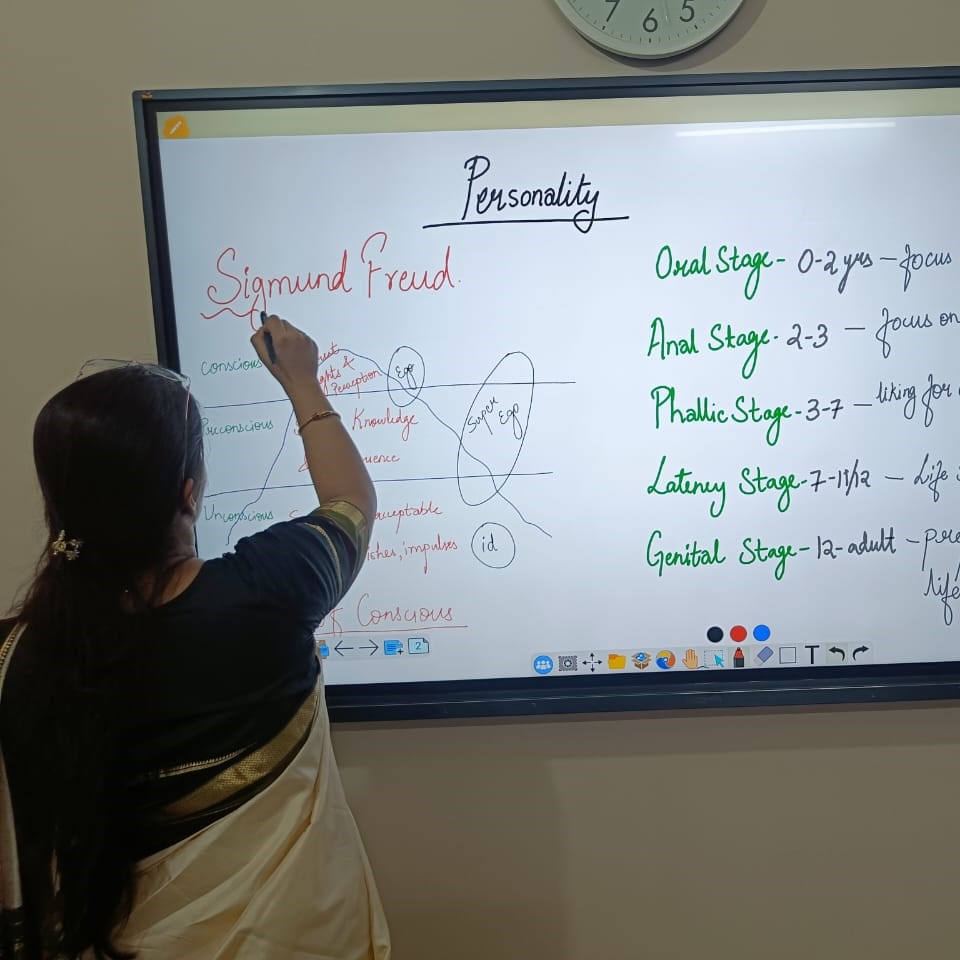 7 6 5
Personality
Sigmund Freud.
Conscious
&
Perception
Ego
Preconscious
Knowledge
Super
Ego
Unconscious
id
impulses
Conscious
Oral Stage - 0-2 yrs - focus
Anal Stage - 2-3 - focus on
Phallic Stage - 3-7 - liking for
Latency Stage - 7-11/12 - Life
Genital Stage - 12-adult -
life
2
T